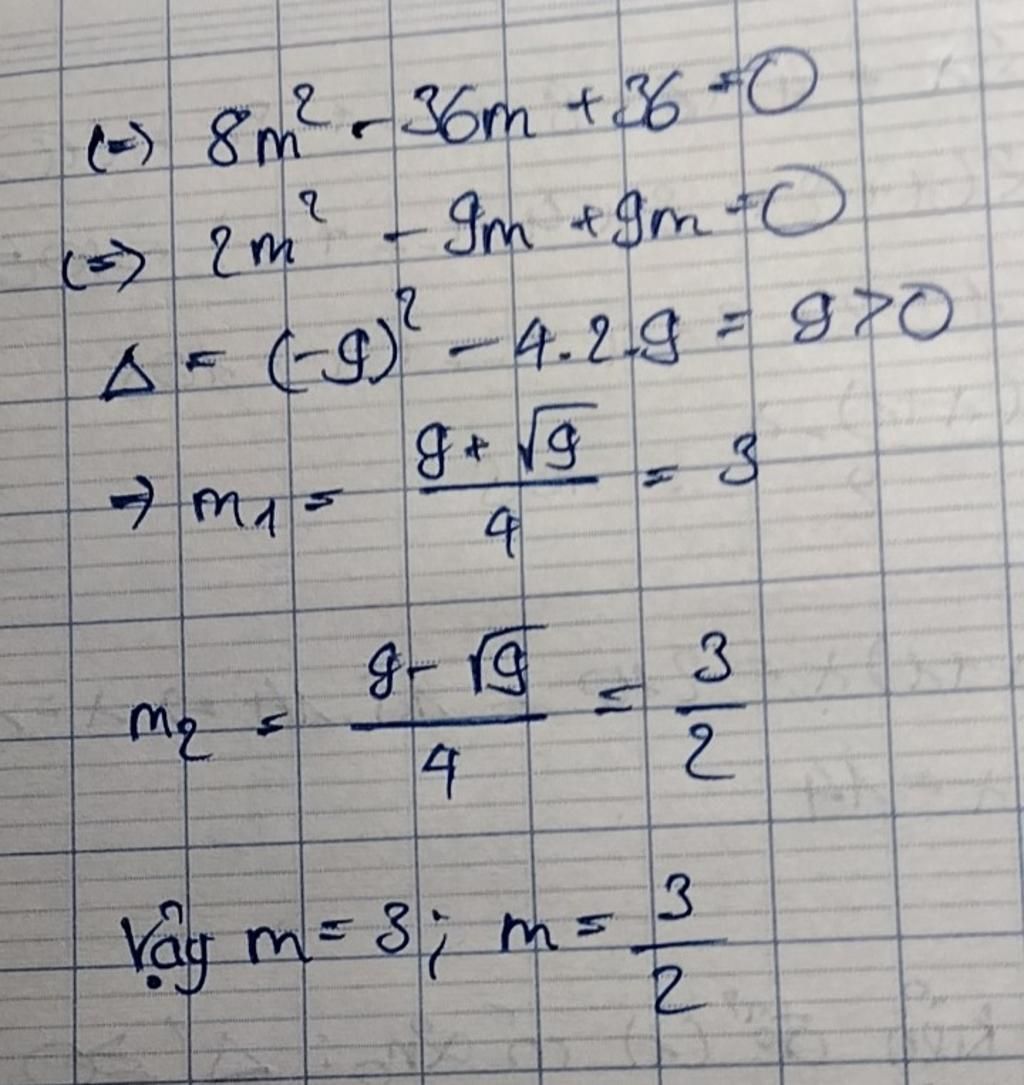 (=) 8m² - 36m + 36 = 0
(=) 2m² - 9m + 9m = 0
Δ = (-9)² - 4.2.9 = 9 > 0
→ m₁ = (9 + √9)/4 = 3
m₂ = (9 - √9)/4 = 3/2
Vậy m = 3; m = 3/2